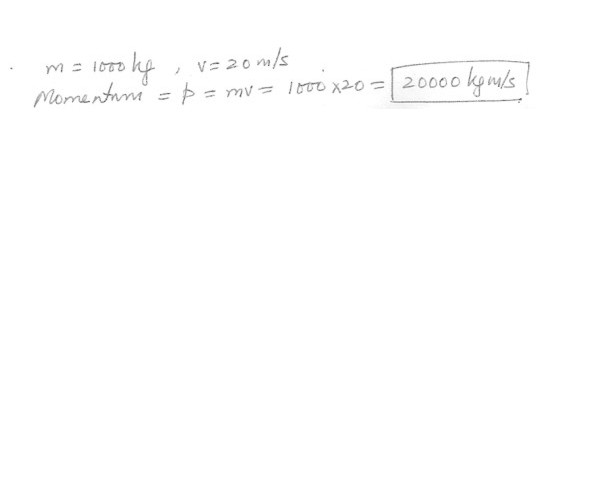 m = 1000 kg , v = 20 m/s
Momentum = p = mv = 1000 × 20 = 20000 kg m/s